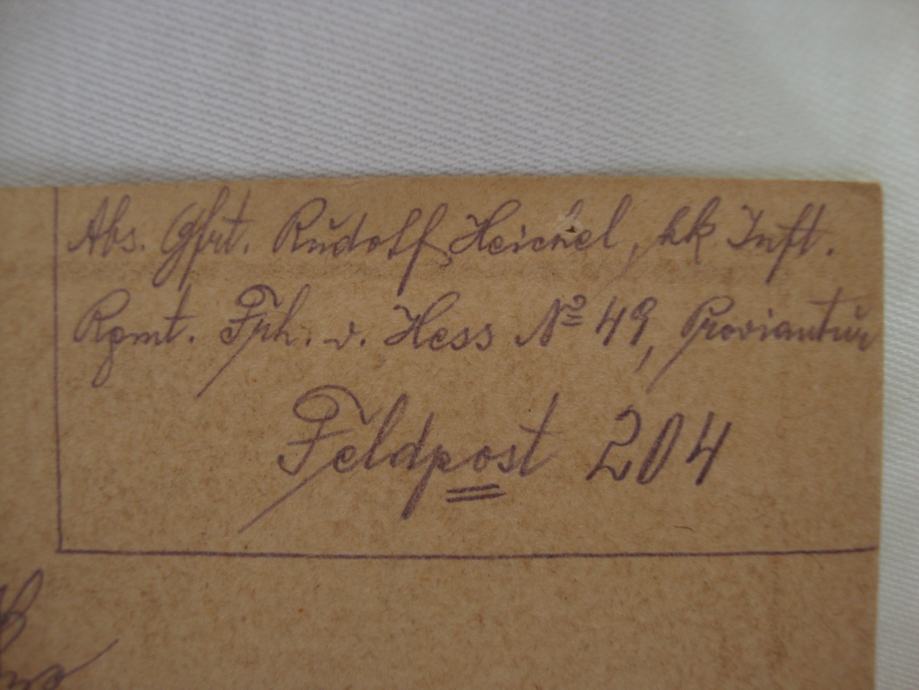 Abs. Gfrt. Rudolf Heichel, kk Inft.
Rgmt. Frh. v. Hess № 49, Proviantur
Feldpost 204